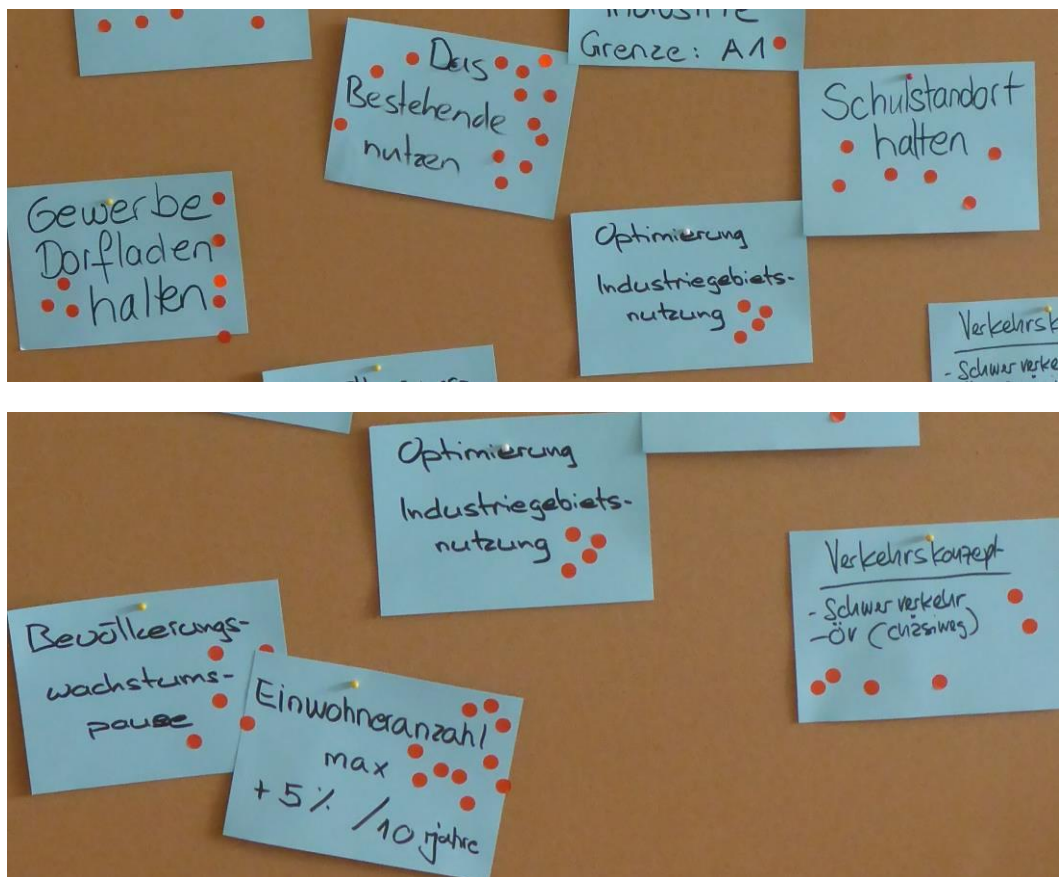 Grenze: A1
Das
Bestehende
nutzen
Schulstandort
halten
Gewerbe
Dorfladen
halten
Optimierung
Industriegebiets-
nutzung
Verkehrsk
- Schwerverke
Optimierung
Industriegebiets-
nutzung
Verkehrskonzept
- Schwerverkehr
- ÖV (Chäsiweg)
Bevölkerungs-
wachstums-
pause
Einwohneranzahl
max
+5% /10 jahre